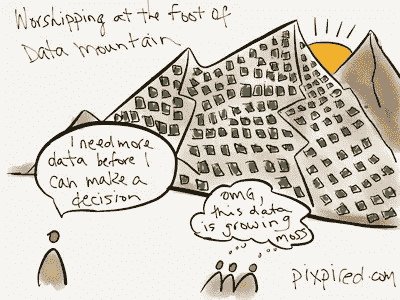 Worshipping at the foot of
Data mountain
I need more
data before I
can make a
decision
OMG,
this data
is growing
moss
pixpired.com